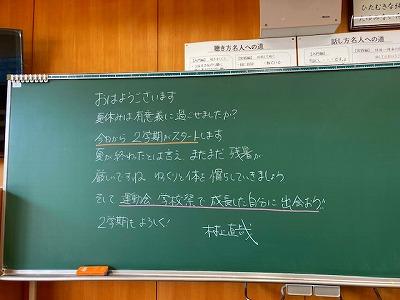 聴き方名人への道
話し方名人への道
ひたむきな
おはようございます
夏休みは有意義に過ごせましたか?
今日から 2学期がスタートします
夏が終わったとは言え、まだまだ 残暑が
厳しいですね ゆっくりと体を慣らしていきましょう
そして 運動会 学校祭で 成長した自分に 出会おう!
2学期も よろしく!
村上直哉